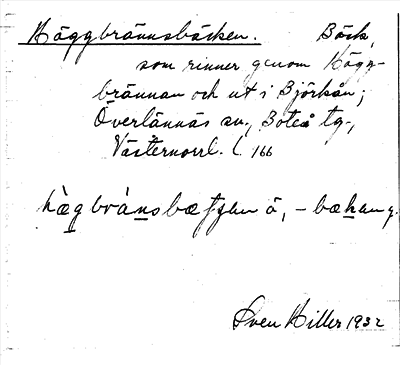 Häggbrännsbäcken. Bäck,
som rinner genom Hägg-
brännan och ut i Björkån;
Överlännäs sn., Boteå tg.,
Västernorrl. l. 166
Sven Hiller 1932